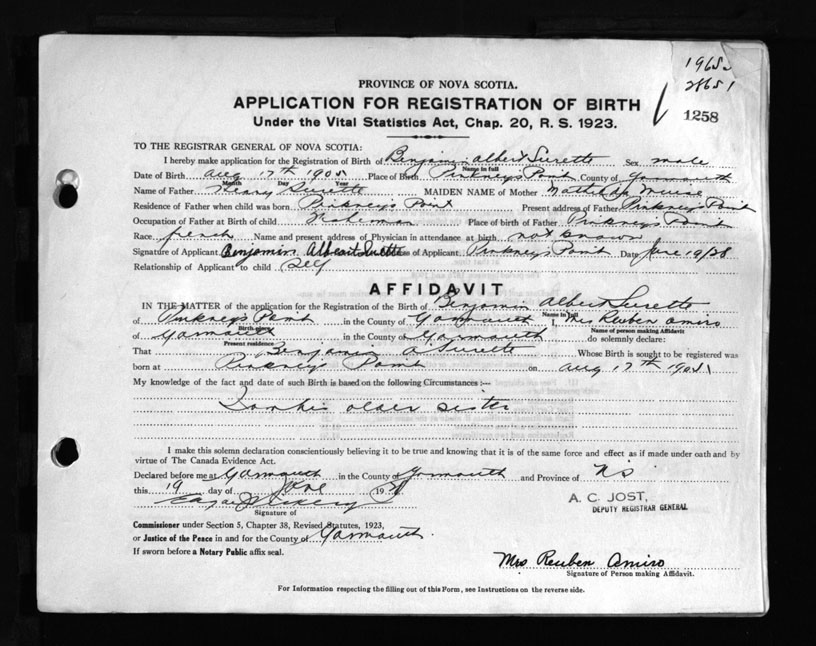 1965
PROVINCE OF NOVA SCOTIA.
APPLICATION FOR REGISTRATION OF BIRTH
1258
Under the Vital Statistics Act, Chap. 20, R. S. 1923.
TO THE REGISTRAR GENERAL OF NOVA SCOTIA:
I hereby make application for the Registration of Birth of Benjamin Albert Surette Sex male
Name in full
Date of Birth Aug 17th 1905 Place of Birth Pinkneys Point County of Yarmouth
Month Day Year
Name of Father Surette MAIDEN NAME of Mother Muise
Residence of Father when child was born Pinkneys Point Present address of Father Pinkneys Point
Occupation of Father at Birth of child Fisherman Place of birth of Father Pinkneys Point
Race french Name and present address of Physician in attendance at birth not known
Signature of Applicant Benjamin Albert Surette of Applicant Pinkneys Point Date June 19/28
Relationship of Applicant to child Self
AFFIDAVIT
IN THE MATTER of the application for the Registration of the Birth of Benjamin Albert Surette
Name in full
of Pinkneys Point in the County of Yarmouth I, Mrs Reuben Amiro
Birth place Name of person making Affidavit
of Yarmouth in the County of Yarmouth do solemnly declare:
Present residence
That Benjamin A Surette Whose Birth is sought to be registered was
born at Pinkneys Point on Aug 17th 1905
My knowledge of the fact and date of such Birth is based on the following Circumstances :—
I am his older sister
I make this solemn declaration conscientiously believing it to be true and knowing that it is of the same force and effect as if made under oath and by
virtue of The Canada Evidence Act.
Declared before me at Yarmouth in the County of Yarmouth and Province of NS
this 19 day of June 19
A. C. JOST,
DEPUTY REGISTRAR GENERAL
Signature of
Commissioner under Section 5, Chapter 38, Revised Statutes, 1923,
or Justice of the Peace in and for the County of Yarmouth.
If sworn before a Notary Public affix seal.
Mrs Reuben Amiro
Signature of Person making Affidavit.
For Information respecting the filling out of this Form, see Instructions on the reverse side.